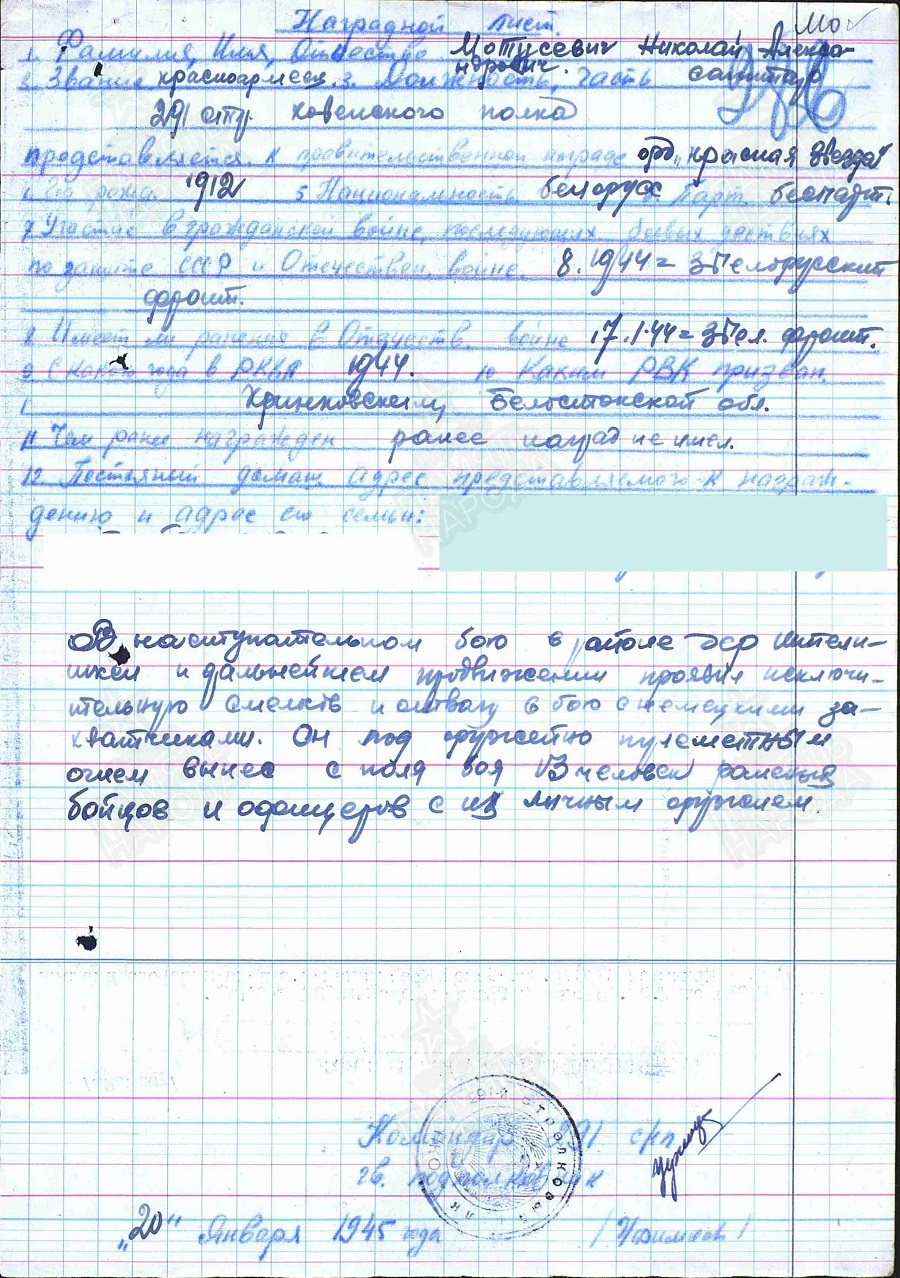 Мо
Наградной лист.
1. Фамилия, Имя, Отчество Мотусевич Николай Алекса-
ндрович.
2. Звание красноармеец. 3. Должность, часть санитар
291 стр. Ковенского полка
представляется к правительственной награде орд. "Красная Звезда"
4. Год рожд. 1912 5 Национальность белорусс 6 Парт. беспарт.
7 Участие в гражданской войне, последующих боевых действиях
по защите СССР и Отечествен. войне. 8.1944г 3 Белорусский
фронт.
8 Имеет ли ранения в Отечеств. войне 17.1.44г 3 Бел. фронт.
9. С какого года в РККА 1944. 10 Каким РВК призван.
Кринковским Белостокской обл.
11 Чем ранее награжден ранее наград не имел.
12. Постоянный домаш. адрес представляемого к награж-
дению и адрес его семьи:
В наступательном бою в районе
и дальнейшем продвижении проявил исключи-
тельную смелость и отвагу в бою с немецкими за-
хватчиками. Он под оружейно пулеметным
огнем вынес с поля боя 13 человек раненых
бойцов и офицеров с их личным оружием.
Командир 291 с/п
гв. подполковник
"20" Января 1945 года
НАРОДА